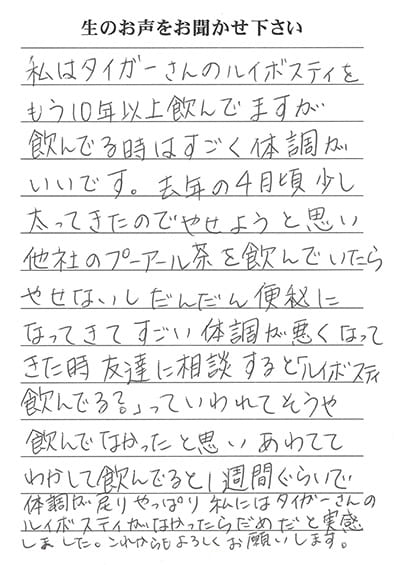 生のお声をお聞かせ下さい
私はタイガーさんのルイボスティを
もう10年以上飲んでますが
飲んでる時はすごく体調が
いいです。去年の4月頃少し
太ってきたのでやせようと思い
他社のプーアール茶を飲んでいたら
やせないしだんだん便秘に
なってきてすごい体調が悪くなって
きた時友達に相談すると「ルイボスティ
飲んでる?」っていわれてそうや
飲んでなかったと思いあわてて
わかして飲んでると1週間ぐらいで
体調が戻りやっぱり私にはタイガーさんの
ルイボスティがなかったらだめだと実感
しました。これからもよろしくお願いします。